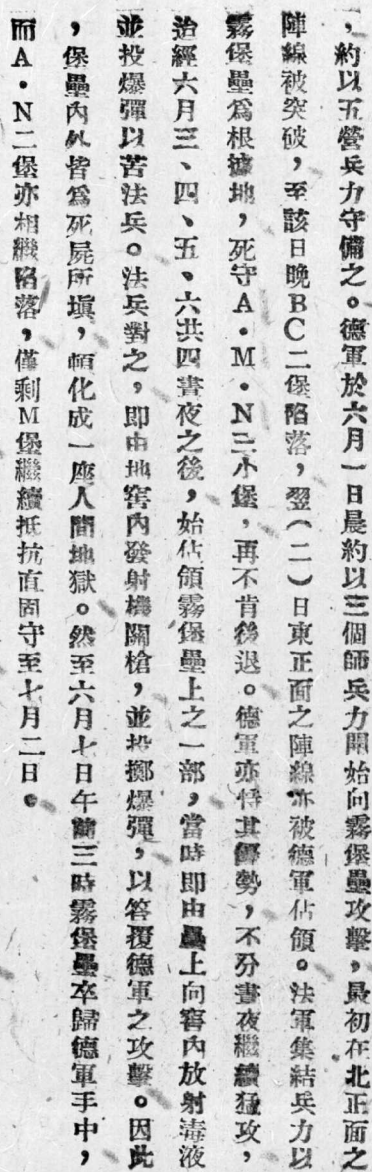 ，約以五營兵力守備之。德軍於六月一日晨約以三個師兵力開始向霧堡壘攻擊，最初在北正面之
陣線被突破，至該日晚BC二堡陷落，翌（二）日東正面之陣線亦被德軍佔領。法軍集結兵力以
霧堡壘爲根據地，死守A·M·N三小堡，再不肯後退。德軍亦恃其優勢，不分晝夜繼續猛攻，
迨經六月三、四、五、六共四晝夜之後，始佔領霧堡壘上之一部，當時即由壘上向窖內放射毒液
並投爆彈以苦法兵。法兵對之，即由地窖內發射機關槍，並投擲爆彈，以答覆德軍之攻擊。因此
，堡壘內外皆爲死屍所塡，頓化成一座人間地獄。然至六月七日午前三時霧堡壘卒歸德軍手中，
而A·N二堡亦相繼陷落，僅剩M堡繼續抵抗直固守至七月二日。